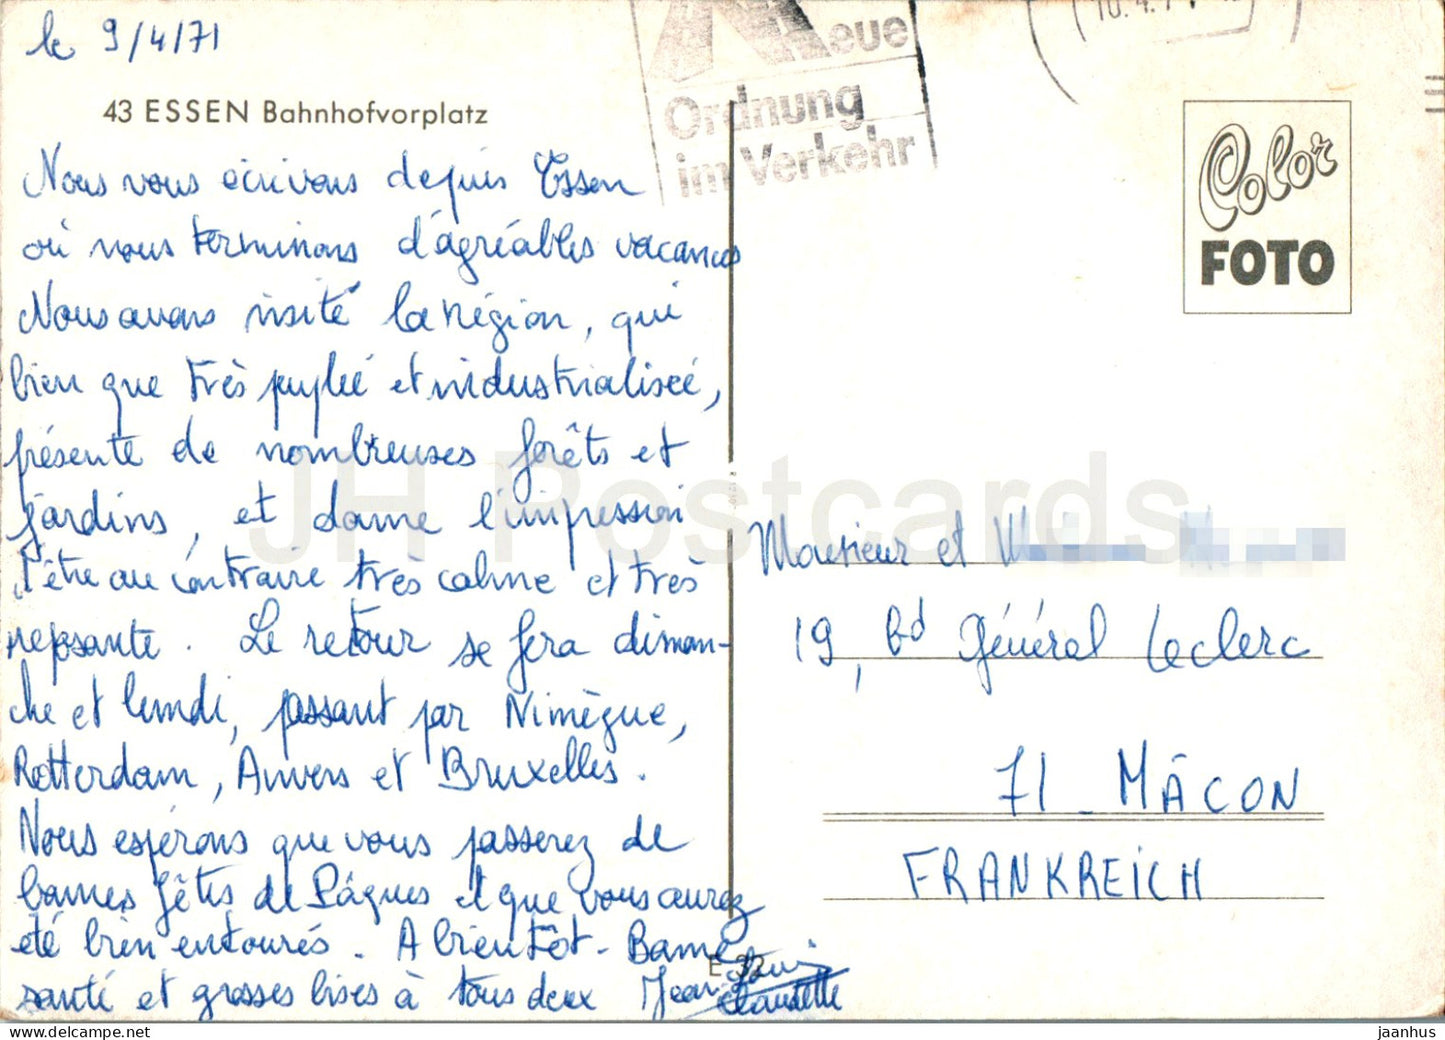 le 9/4/71
43 ESSEN Bahnhofvorplatz
Nous vous écrivons depuis Essen
où nous terminons d'agréables vacances
Nous avons visité la région, qui
bien que très peuplée et industrialisée,
présente de nombreuses forêts et
jardins, et donne l'impression
d'être au contraire très calme et très
reposante. Le retour se fera diman-
che et lundi, passant par Nimègue,
Rotterdam, Anvers et Bruxelles.
Nous espérons que vous passerez de
bonnes fêtes de Pâques et que vous aurez
été bien entourés. A bientôt - Bonne
santé et grosses bises à tous deux
Jean Louis
Claudette
E 32
Neue
Ordnung
im Verkehr
10.4.7
Color
FOTO
Monsieur et
19, bd Général Leclerc
71 - MÂCON
FRANKREICH
JH Postcards
www.delcampe.net
jaanhus